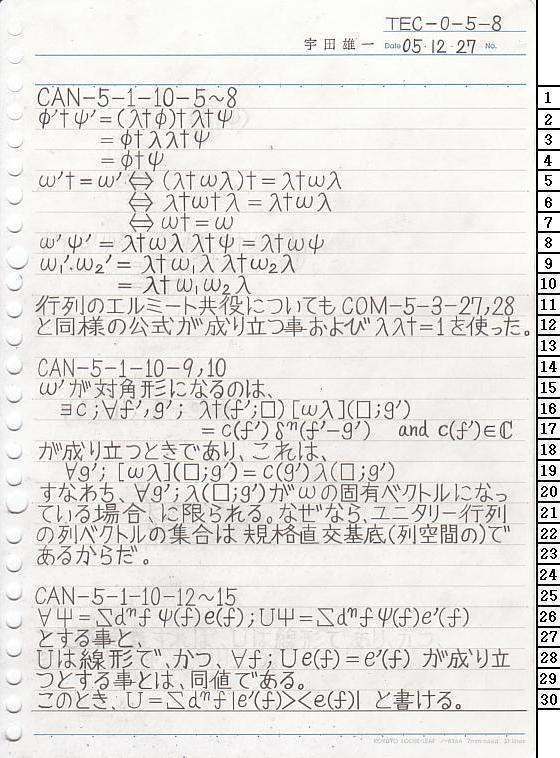 TEC-0-5-8
宇田雄一 Date 05・12・27 No.
CAN-5-1-10-5~8
φ'†ψ' = (λ†φ)†λ†ψ
= φ†λλ†ψ
= φ†ψ
ω'† = ω' ⇔ (λ†ωλ)† = λ†ωλ
⇔ λ†ω†λ = λ†ωλ
⇔ ω† = ω
ω'ψ' = λ†ωλλ†ψ = λ†ωψ
ω₁'・ω₂' = λ†ω₁λλ†ω₂λ
= λ†ω₁ω₂λ
行列のエルミート共役についても COM-5-3-27,28
と同様の公式が成り立つ事および λλ†=1を使った。
CAN-5-1-10-9,10
ω'が対角形になるのは、
∃c;∀f',g'; λ†(f';□)[ωλ](□;g')
= c(f')δⁿ(f'-g') and c(f')∈ℂ
が成り立つときであり、これは、
∀g'; [ωλ](□;g') = c(g')λ(□;g')
すなわち、∀g';λ(□;g')がωの固有ベクトルになっ
ている場合、に限られる。なぜなら、ユニタリー行列
の列ベクトルの集合は規格直交基底(列空間の)で
あるからだ。
CAN-5-1-10-12~15
∀Ψ=∑dⁿf ψ(f)e(f);UΨ=∑dⁿf ψ(f)e'(f)
とする事と、
Uは線形で、かつ、∀f;Ue(f)=e'(f) が成り立
つとする事とは、同値である。
このとき、U=∑dⁿf|e'(f)><e(f)| と書ける。
1
2
3
4
5
6
7
8
9
10
11
12
13
14
15
16
17
18
19
20
21
22
23
24
25
26
27
28
29
30
KOKUYO LOOSE-LEAF ノ-836A 7mm ruled 31 lines